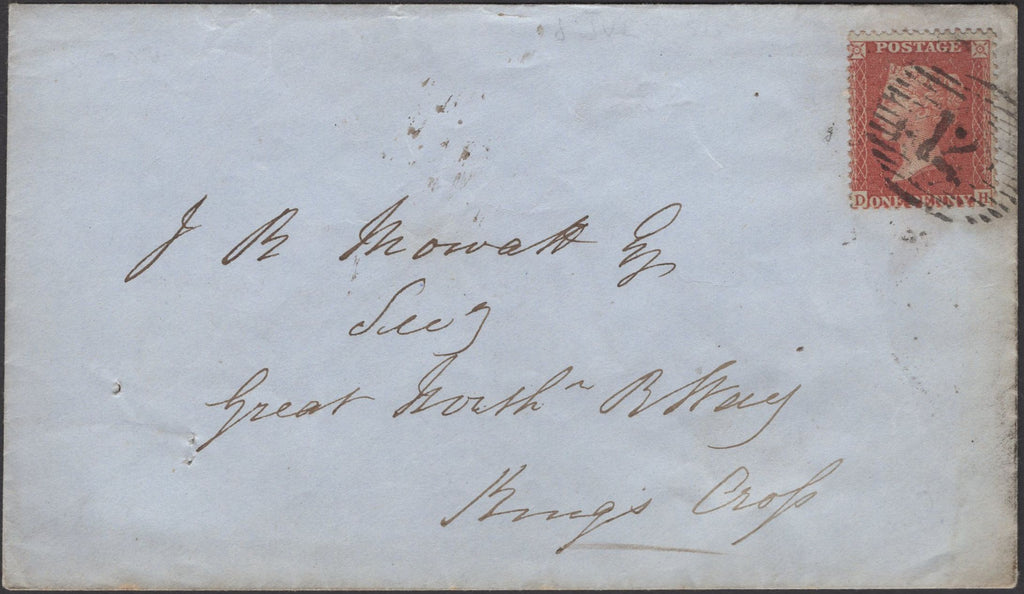 POSTAGE
D ONE PENNY H
J R Mowatt Esq
Secy
Great Northn R Way
Kings Cross